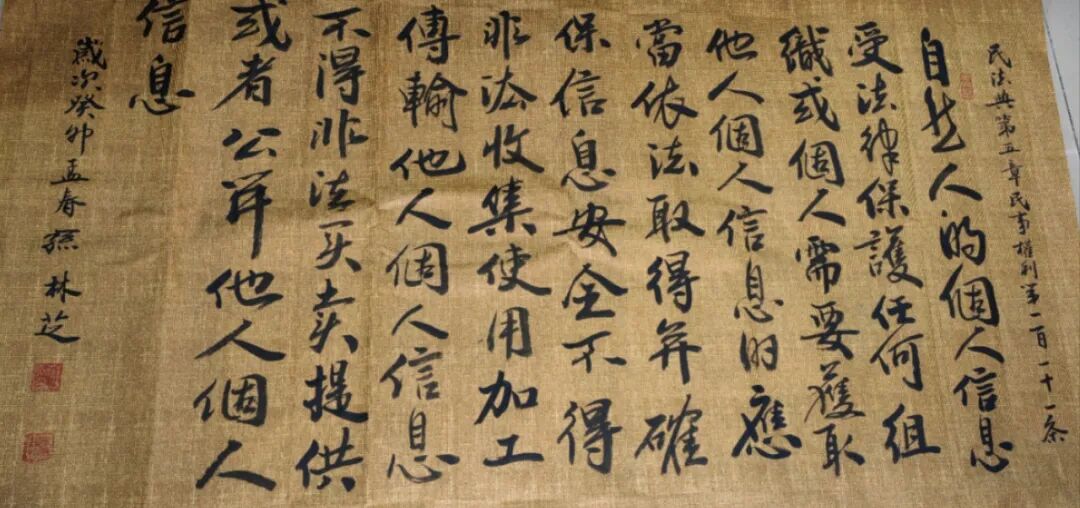 民法典第五章民事權利第一百一十一条
自然人的個人信息
受法律保護任何組
織或個人需要獲取
他人個人信息的應
當依法取得并確
保信息安全不得
非法收集使用加工
傳輸他人個人信息
不得非法买卖提供
或者公開他人個人
信息
歲次癸卯孟春孫林芝